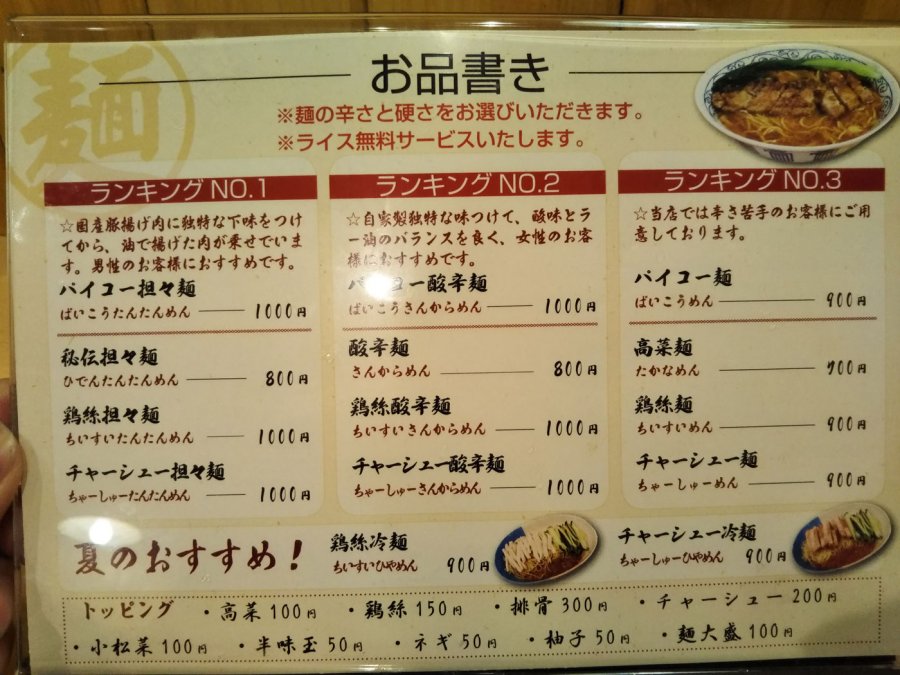 麺
お品書き
※麺の辛さと硬さをお選びいただきます。
※ライス無料サービスいたします。
ランキング NO.1
☆国産豚揚げ肉に独特な下味をつけ
てから、油で揚げた肉が乗せていま
す。男性のお客様におすすめです。
パイコー担々麺
ぱいこうたんたんめん 1000円
秘伝担々麺
ひでんたんたんめん 800円
鶏絲担々麺
ちいすいたんたんめん 1000円
チャーシュー担々麺
ちゃーしゅーたんたんめん 1000円
ランキング NO.2
☆自家製独特な味つけて、酸味とラ
ー油のバランスを良く、女性のお客
様におすすめです。
パイコー酸辛麺
ぱいこうさんからめん 1000円
酸辛麺
さんからめん 800円
鶏絲酸辛麺
ちいすいさんからめん 1000円
チャーシュー酸辛麺
ちゃーしゅーさんからめん 1000円
ランキング NO.3
☆当店では辛さ苦手のお客様にご用
意しております。
パイコー麺
ぱいこうめん 900円
高菜麺
たかなめん 700円
鶏絲麺
ちいすいめん 900円
チャーシュー麺
ちゃーしゅーめん 900円
夏のおすすめ！
鶏絲冷麺
ちいすいひやめん 900円
チャーシュー冷麺
ちゃーしゅーひやめん 900円
トッピング ・高菜 100円 ・鶏絲 150円 ・排骨 300円 ・チャーシュー 200円
・小松菜 100円 ・半味玉 50円 ・ネギ 50円 ・柚子 50円 ・麺大盛 100円